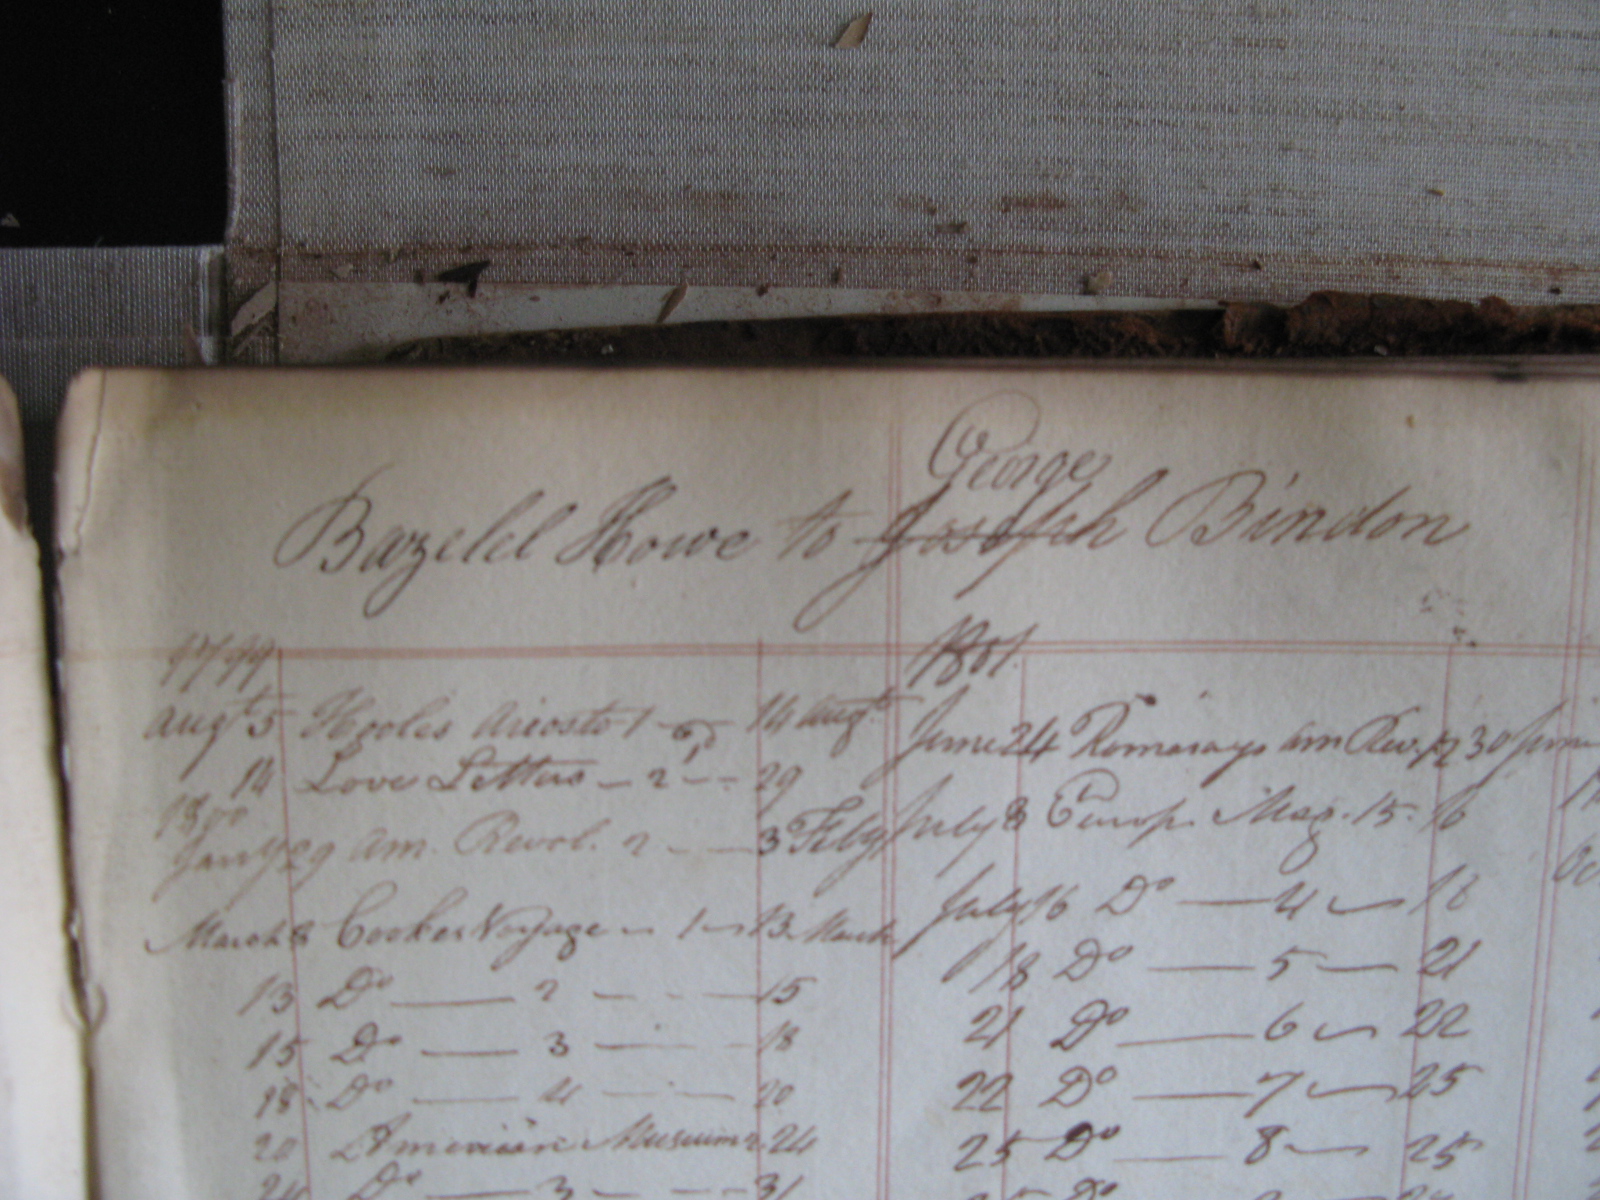 George
Bazelel Howe to Joseph Bindon
1799
Augt 5 Hooles Ariosto 1 14 Augt
14 Love Letters - 2 - - 29
1800
Jany 29 Am. Revol. 2 - - 3 Feby
March 8 Cookes Voyage - 1 - 13 March
13 Do — 2 - - - 15
15 Do — 3 — - 18
18 Do — 4 - - 20
20 American Museum 2 24
24 Do — 3 - - - 31
1801
June 24 Ramsays Am Rev. 30 June
July 8 Europ. Mag. 15. 16
July 16 Do — 4 — 18
18 Do — 5 — 21
21 Do — 6 — 22
22 Do — 7 — 25
25 Do — 8 — 25